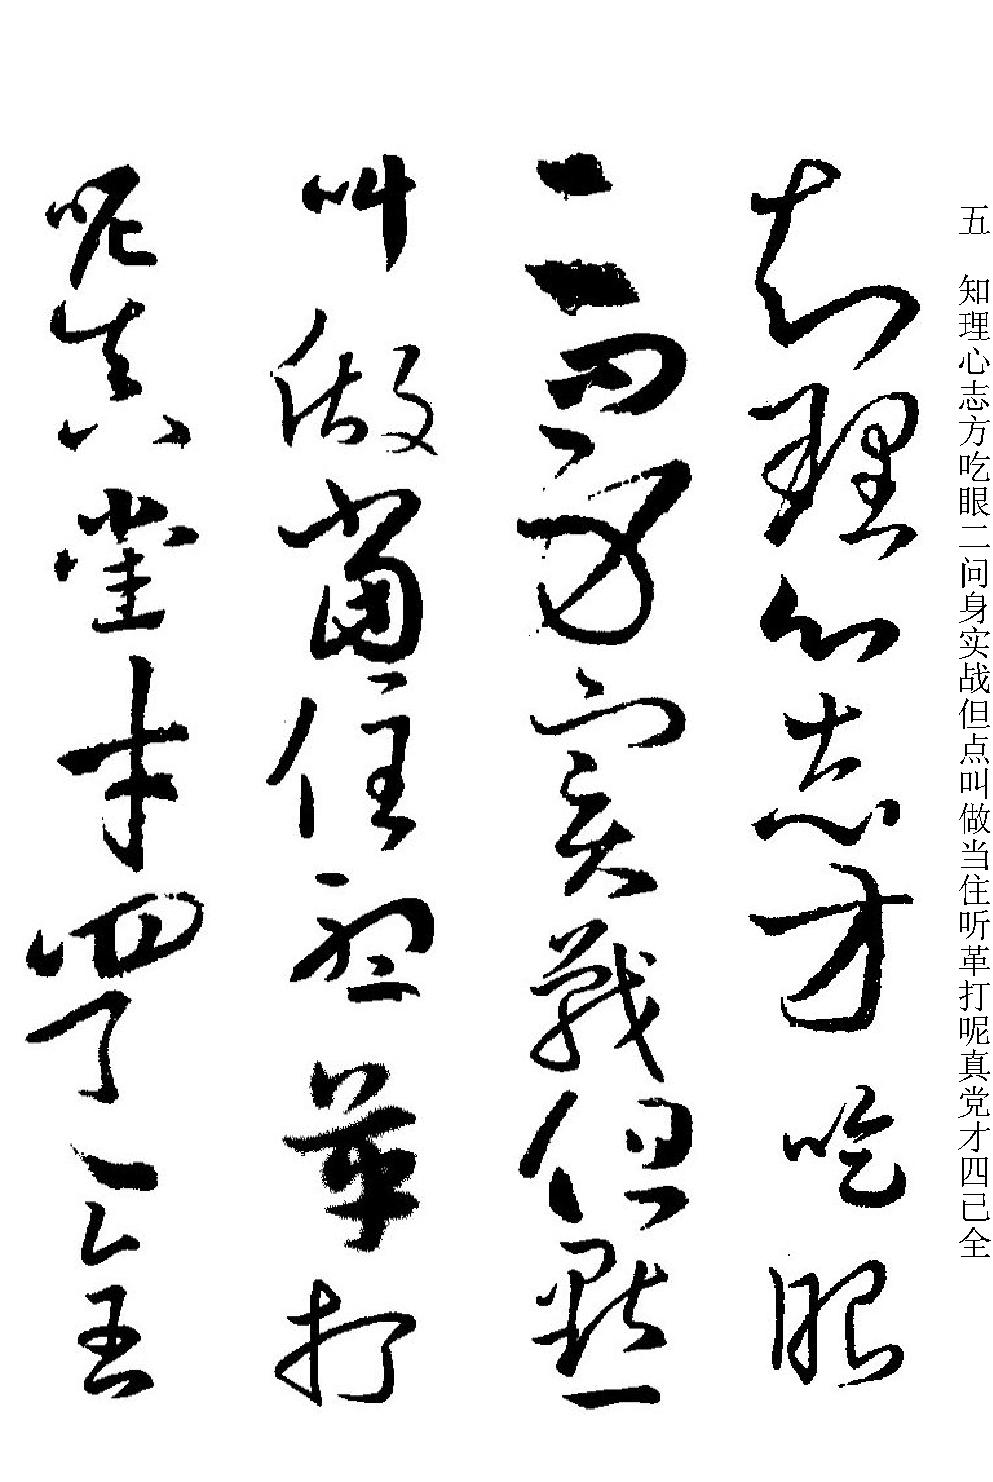 五 知理心志方吃眼二问身实战但点叫做当住听革打呢真党才四已全
知理心志方吃眼
二問身實戰但點
叫做當住聽革打
呢真黨才四已全